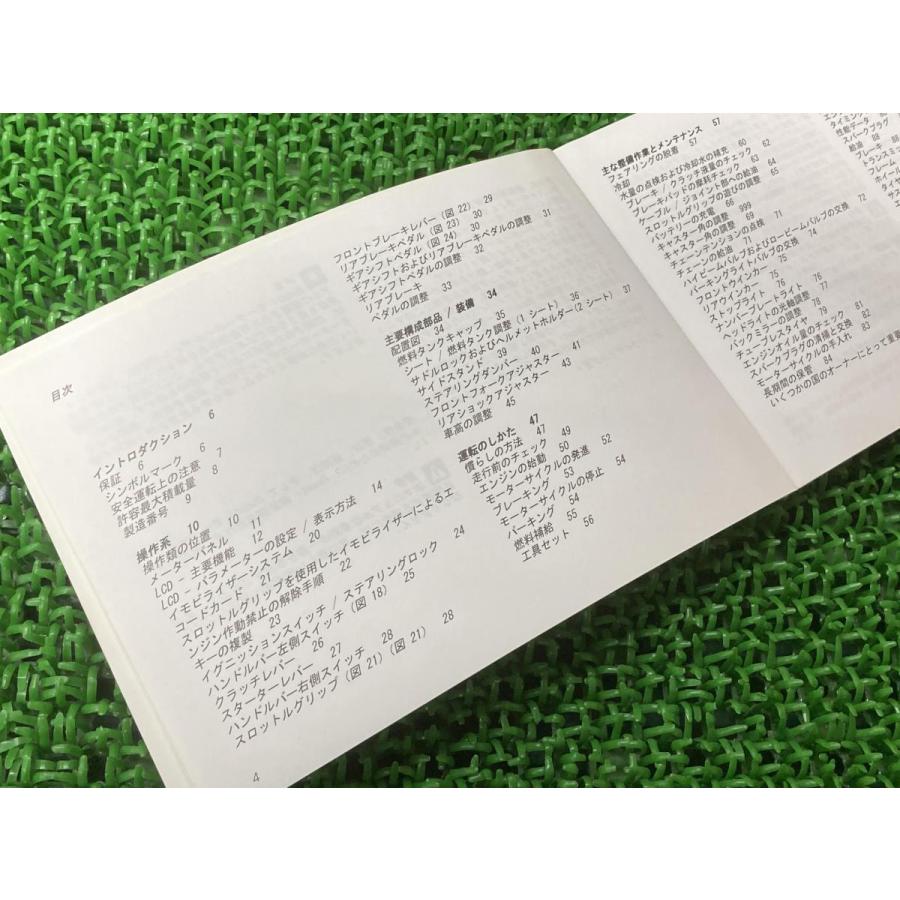 目次
イントロダクション 6
保証 6
シンボルマーク 6
安全運転上の注意 7
許容最大積載量 8
製造番号 9
操作系 10
操作類の位置 10
メーターパネル 11
LCD – 主要機能 12
LCD – パラメーターの設定 / 表示方法 14
イモビライザーシステム 20
コードカード 21
スロットルグリップを使用したイモビライザーによるエ
ンジン作動禁止の解除手順 22
キーの複製 23
イグニッションスイッチ / ステアリングロック 24
ハンドルバー左側スイッチ (図 18) 25
クラッチレバー 26
スターターレバー 27
ハンドルバー右側スイッチ 28
スロットルグリップ (図 21) (図 21) 28
4
フロントブレーキレバー (図 22) 29
リアブレーキペダル (図 23) 30
ギアシフトペダル (図 24) 30
ギアシフトおよびリアブレーキペダルの調整 31
ギアシフトペダルの調整 32
リアブレーキ
ペダルの調整 33
主要構成部品 / 装備 34
配置図 34
燃料タンクキャップ 35
シート / 燃料タンク調整 (1 シート) 36
サドルロックおよびヘルメットホルダー(2 シート) 37
サイドスタンド 39
ステアリングダンパー 40
フロントフォークアジャスター 41
リアショックアジャスター 43
車高の調整 45
運転のしかた 47
慣らしの方法 47
走行前のチェック 49
エンジンの始動 50
モーターサイクルの発進 52
ブレーキング 53
モーターサイクルの停止 54
パーキング 54
燃料補給 55
工具セット 56
主な整備作業とメンテナンス 57
フェアリングの脱着 57
冷却
水量の点検および冷却水の補充 60
ブレーキ / クラッチ液量のチェック 62
ブレーキパッドの摩耗チェック 63
ケーブル / ジョイント部への給油 64
スロットルグリップの遊びの調整 65
バッテリーの充電 66
キャスター角の調整 999
キャスター角の調整 69
チェーンテンションの点検 71
チェーンの給油 71
ハイビームバルブおよびロービームバルブの交換 72
パーキングライトバルブの交換 74
フロントウインカー 75
リアウインカー 75
ストップライト 76
ナンバープレートライト 76
ヘッドライトの光軸調整 77
バックミラーの調整 78
チューブレスタイヤ 79
エンジンオイル量のチェック 81
スパークプラグの清掃と交換 82
モーターサイクルの手入れ 83
長期間の保管 84
いくつかの国のオーナーにとって重要
タイミン
性能データ
スパークプラグ
給油 88
ブレーキ
トランスミッ
フレーム
ホイール
タイヤ
サス